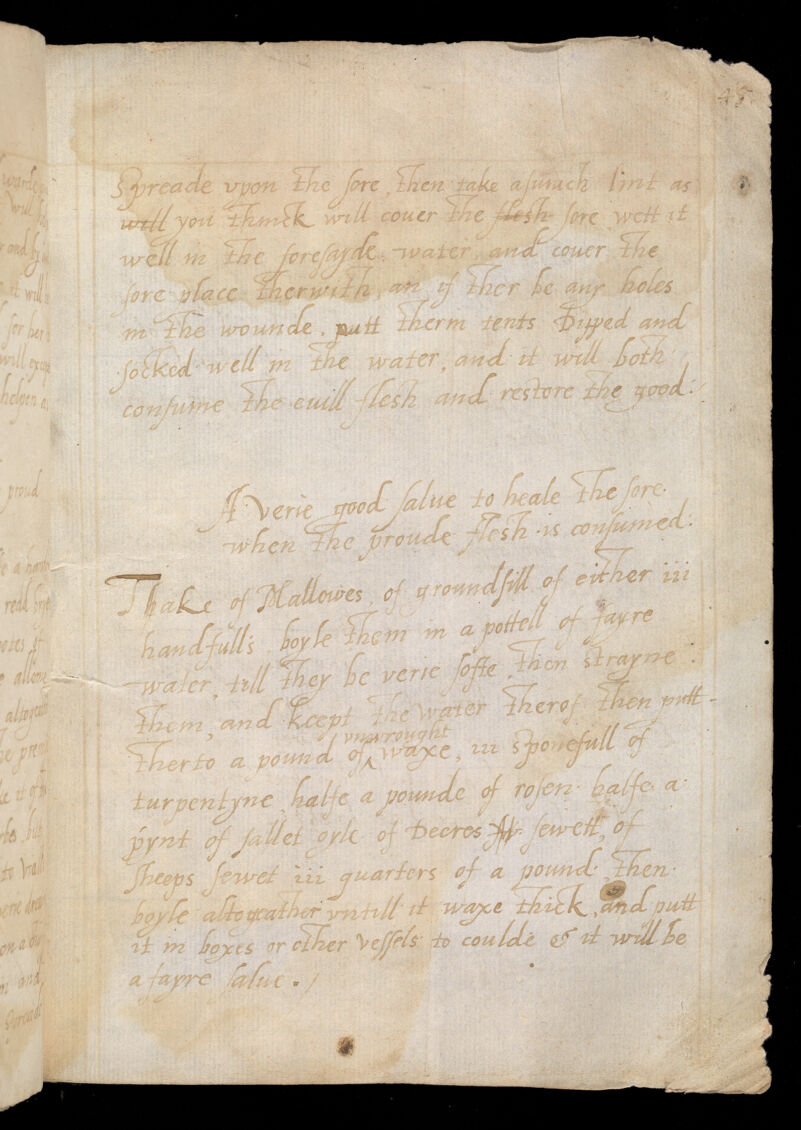 48
Spreade vpon the sore, then take asmuch lint as
will you thinck will couer the flesh sore wett it
well in the foresayde water, and couer the
sore place therwith, an if ther be any holes
in the wounde. putt therm tents Dipped and
socked well in the water, and it will both
consume the euill flesh and restore the good.
A verie good salue to heale the sore
when the proude flesh is consumed.
Thake of Mallowes, of groundsill of either iii
handfulls boyle them in a pottell of fayre
water, till they be verie softe, then strayne
them, and kcept the water therof then putt
therto a pound of vnwrought waxe, iii sponefull of
turpentyne halfe a pounde of rosen halfe a
pynt of sallet oyle of Deeres sewett, of
sheeps sewet iii quarters of a pound, then
boyle altogeather vntill it waxe thick, and putt
it in boxes or other vessels to coulde & it will be
a fayre salue.